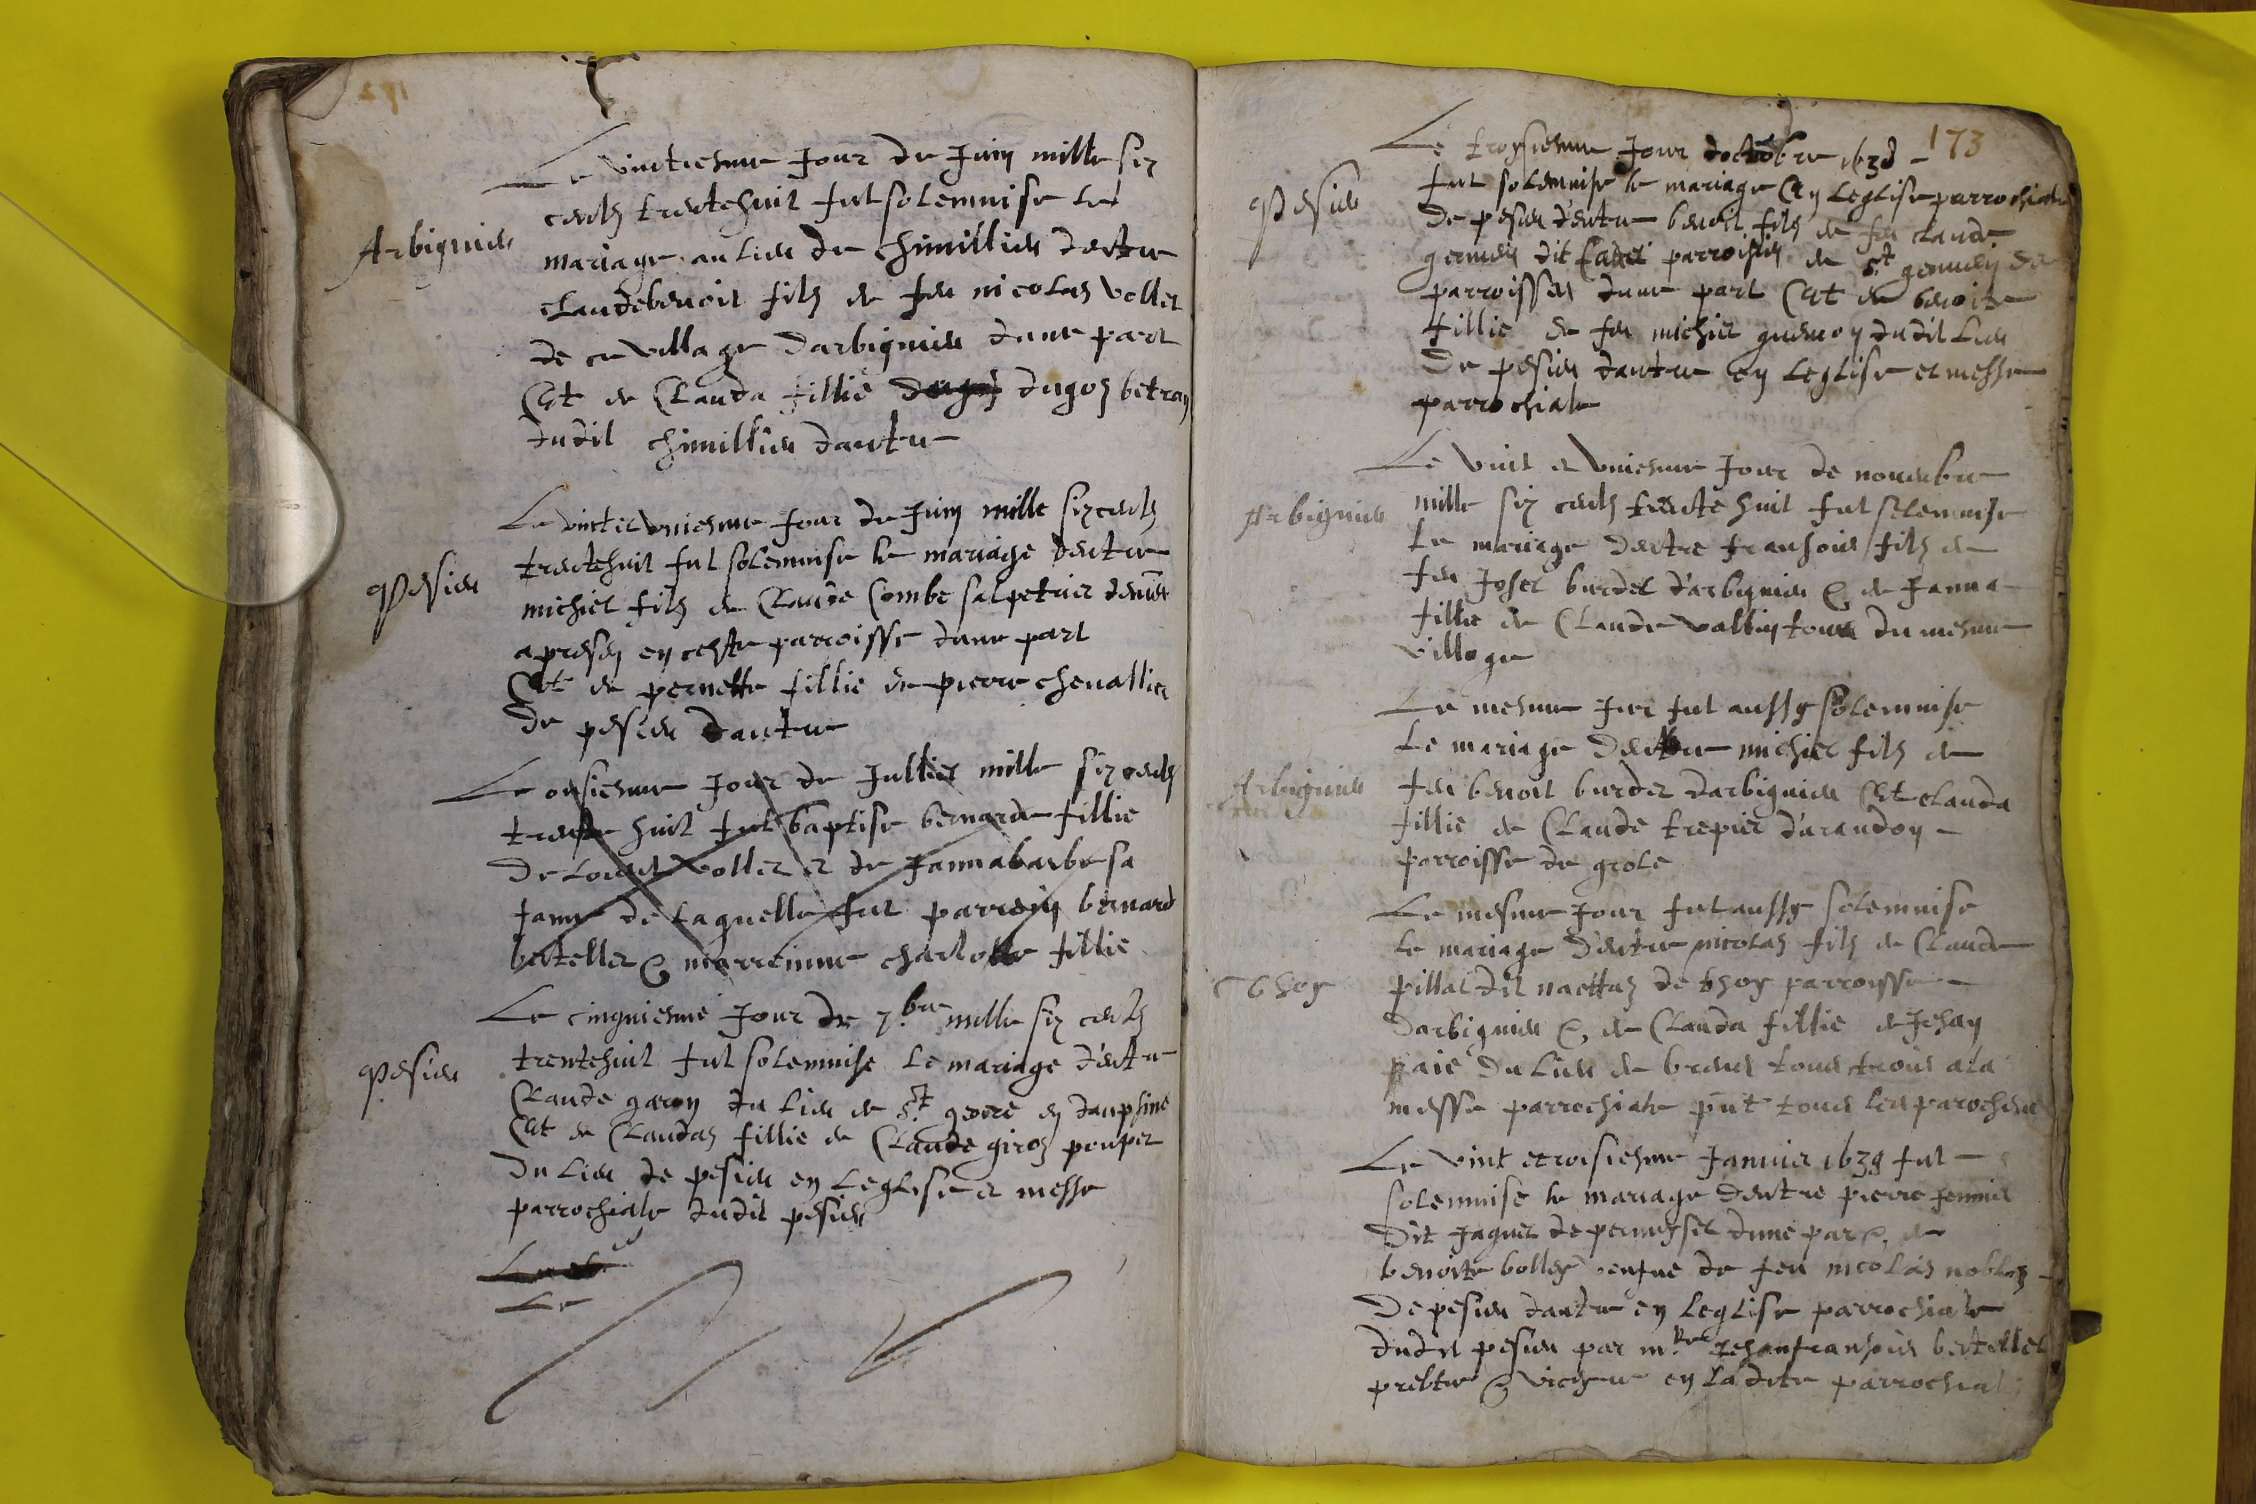 172
Le vinctiesme Jour de Juin mille six
cents trentehuit fut solemnise le
Arbignieu
mariage au lieu de Chimillieu dentre
Claudebenoit fils de feu nicolas vollet
de ce village Darbignieu dune part
Et de Clauda fillie dugoz betray
dudit chimillieu dautre
Le vinct et uniesme Jour de Juin mille six cents
trentehuit fut solemnise le mariage dentre
Pesieu
michiel fils de Claude Combe salpetrier
apresen en ceste parroisse dune part
Et de pernette fillie de pierre chevallier
de pesieu dautre
Le onsiesme Jour de Jullier mille six cents
trente huit fut baptise bernarde fillie
De Louis vollet et de Janna barbe sa
fame de laquelle fut parrein bernard
bertellet & marreinne charlotte fillie
Le cinquiesme Jour de 7.bre mille six cents
trentehuit fut solemnise le mariage dentre
Pesieu
Claude garon du lieu de St geoere en dauphine
Et de Claudaz fillie de Claude giroz poupet
Du lieu de pesieu en Leglise et messe
parrochiale dudit pesieu
Le
173
Le troysiesme Jour doctobre 1638
fut solemnise le mariage En leglise parrochiale
Pesieu
De pesieu dentre benoit fils de feu claude
germein dit Cadet parroisien de St germein de
parroisses dune part Et de benoite
fillie de feu michiel dudit Lieu
De pesieu dautre en leglise et messe
parrochiale
Le vint et uniesme Jour de novembre
Arbignieu
mille six cents trente huit fut solemnise
Le mariage dentre fransois fils de
feu Josel burdet d'arbignieu & de Janna
fillie de Claude vallin tous du mesme
village
Le mesme Jor fut aussy solemnise
Le mariage Dentre michiel fils de
Arbignieu
feu benoit burdet darbignieu Et clauda
fillie de Claude trepier d'arandon
parroisse de grole
Le mesme Jour fut aussy solemnise
le mariage Dentre nicolas fils de Claude
Thoy
pillat dit naettaz de thoy parroysse
darbignieu & de Clauda fillie de Jehan
paie Du lieu de brens tous trois a la
messe parrochiale pnt tous les parochiens
Le vint etroisiesme Janvier 1639 fut
solemnise le mariage Dentre pierre
Dit Jaquet de peruyset dune par & de
benoite bolley veufue de feu nicolas noblaz
De pesieu dautre en leglise parrochiale
dudit pesieu par m.re Jehanfransois bertellet
prebtre & vicere en ladite parrochial